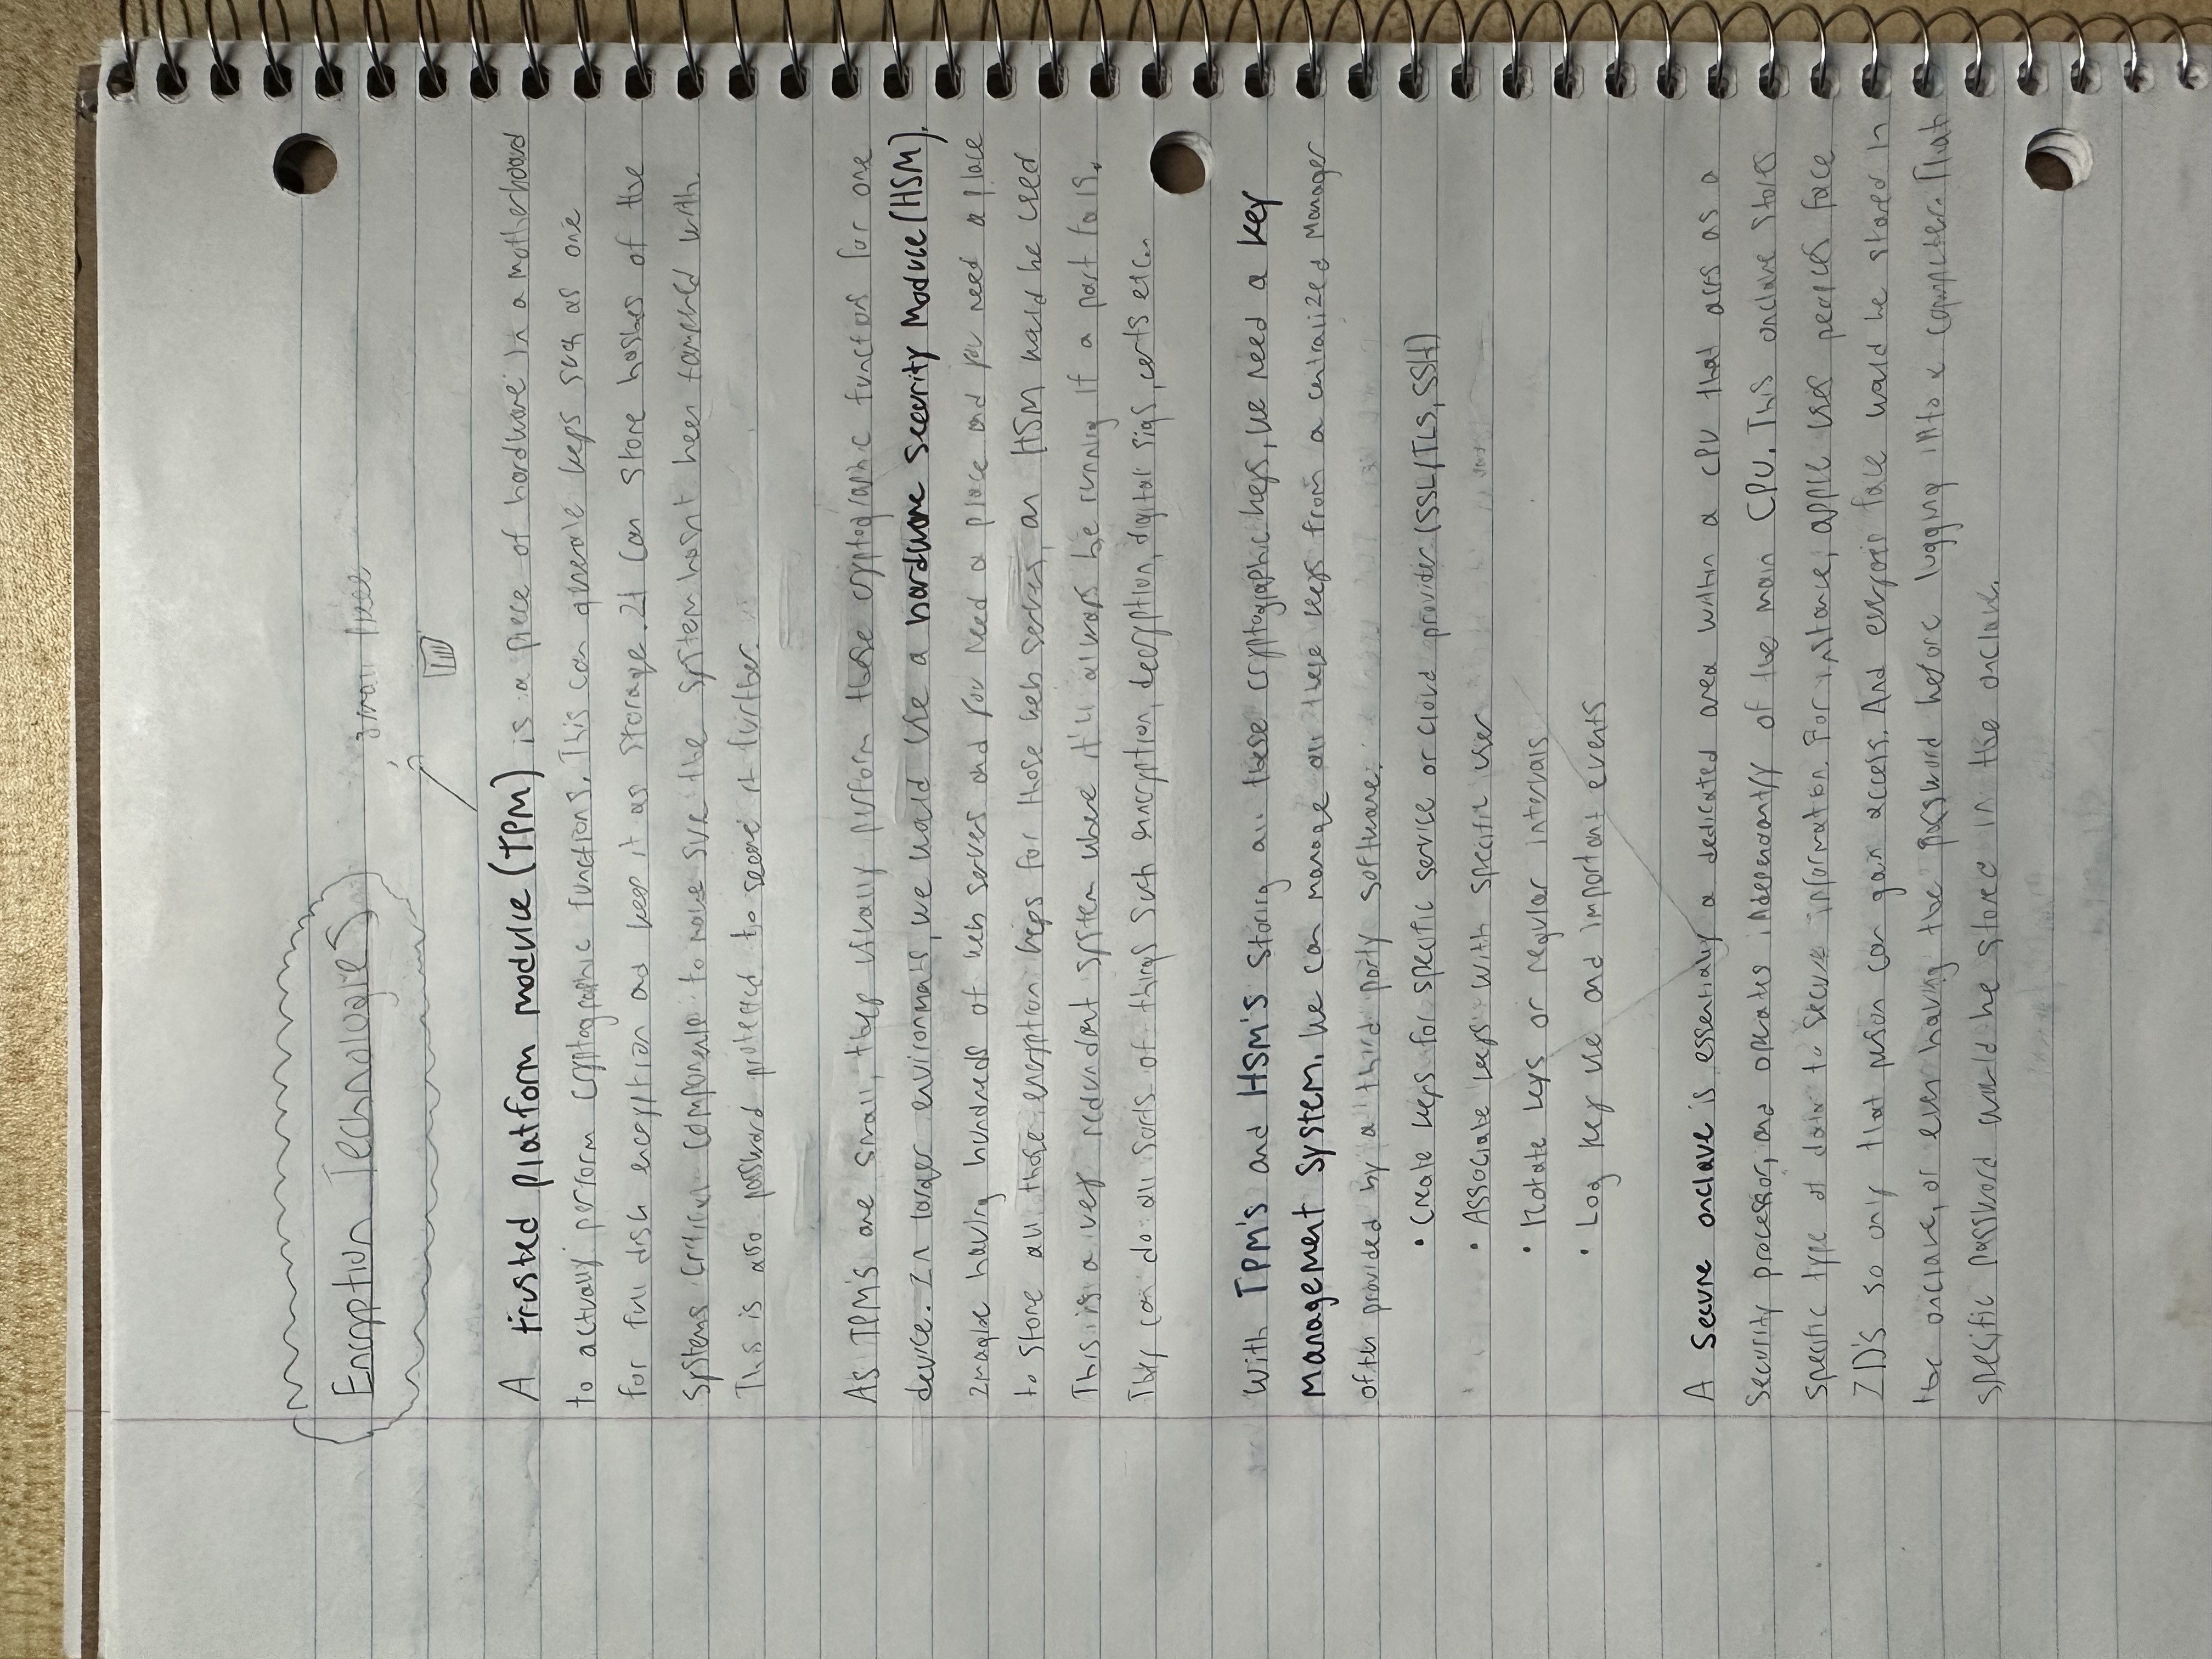 Encryption Technologies
small
A trusted platform module (TPM) is a piece of hardware in a motherboard
to actually perform cryptographic functions. This can generate keys such as one
for full disk encryption and keep it as storage. It can store hashes of the
systems critical components to make sure the system hasn't been tampered with.
This is also password protected to secure it further.
As TPM's are small, they usually perform these cryptographic functions for one
device. In larger environments, we would use a hardware security module (HSM).
Imagine having hundreds of web servers and you need a place and you need a place
to store all those encryption keys for those web servers, an HSM would be used
This is a very redundant system where it'll always be running if a part
They can do all sorts of things such encryption, decryption, digital sigs, certs etc..
With TPM's and HSM's storing all these cryptographic keys, we need a key
management system. We can manage all these keys from a centralized manager
often provided by a third party software.
• Create keys for specific service or cloud provider (SSL/TLS, SSH)
• Associate keys with specific user
• Rotate keys or regular intervals
• Log key use and important events
A secure onclave is essentially a dedicated area within a CPU that acts as a
security processor, and operates independantly of the main CPU. This onclave stores
specific type of data to secure information. For instance, apple uses peoples face
ID's so only that person can gain access. And everyones face would be stored in
the onclave, or even having the password before logging into a computer. That
specific password would be stored in the onclave.